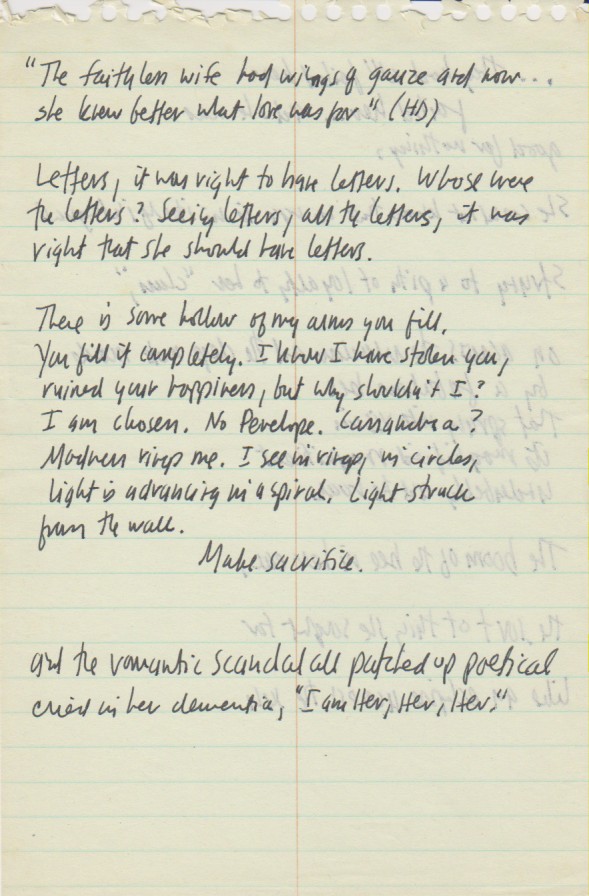 "The faithless wife had wings of gauze and now...
she knew better what love was for" (HD)
Letters, it was right to have letters. Whose were
the letters? Seeing letters, all the letters, it was
right that she should have letters.
There is some hollow of my arms you fill.
You fill it completely. I know I have stolen you,
ruined your happiness, but why shouldn't I?
I am chosen. No Penelope. Cassandra?
Madness rings me. I see in rings, in circles,
light is advancing in a spiral. Light struck
from the wall.
Make sacrifice.
and the romantic scandal all patched up poetical
cried in her dementia, "I am Her, Her, Her."